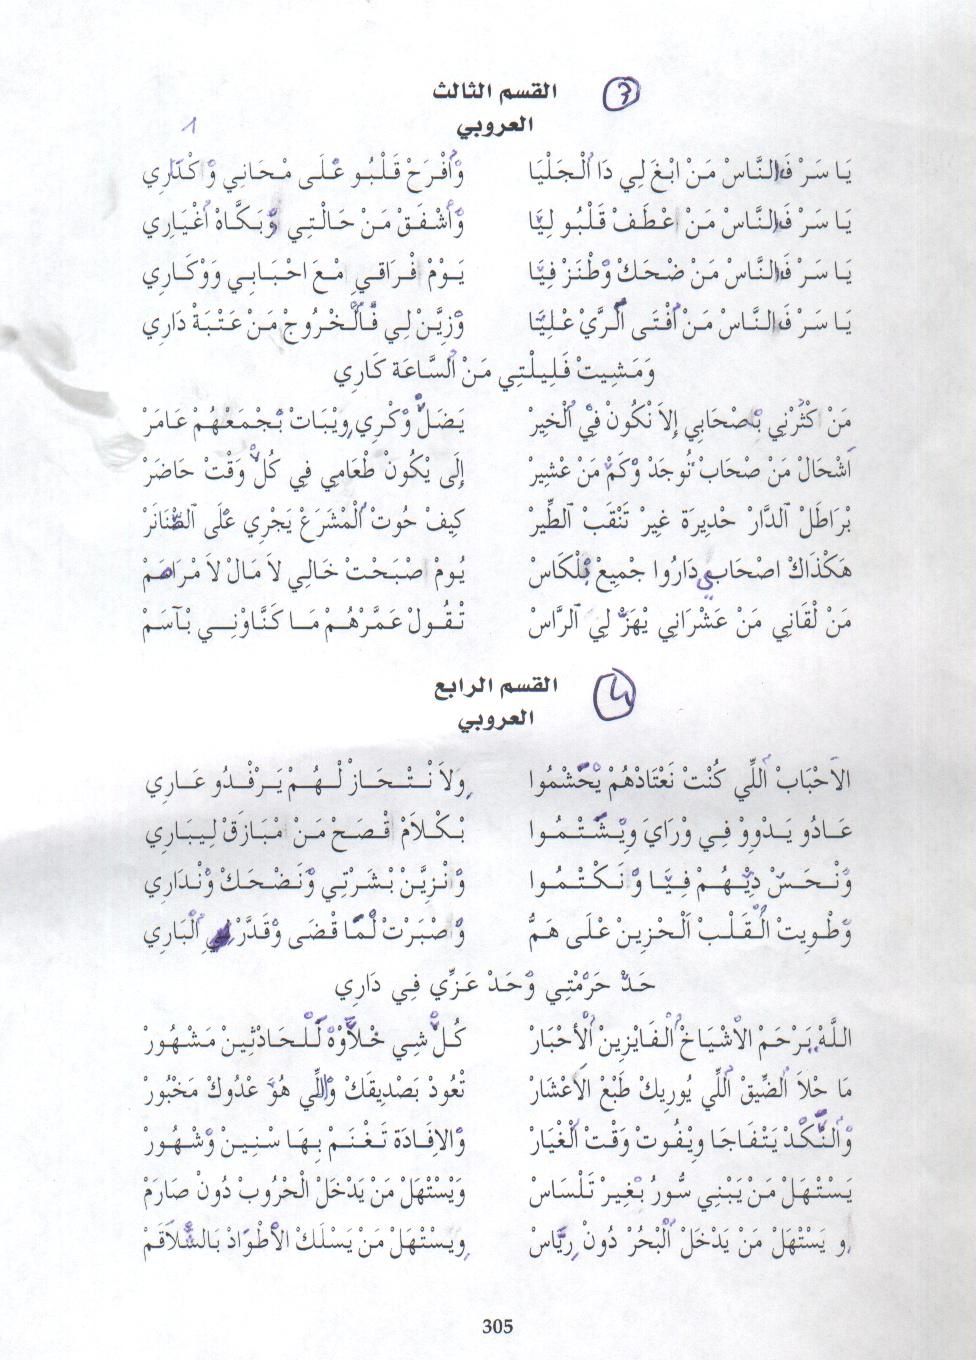 القسم الثالث
3
العروبي
1
يَا سَرْ فَالنَّاسْ مَنْ ابْغَ لِي دَا الْجَلْيَا وَأفْرَحْ قَلْبُو عْلَى مْحَانِي وَكْدَارِي
يَا سَرْ فَالنَّاسْ مَنْ عْطَفْ قَلْبُو لِيَّا وَأشْفَقْ مَنْ حَالْتِي وْبَكَّاهْ أغْيَارِي
يَا سَرْ فَالنَّاسْ مَنْ ضْحَكْ وْطْنَزْ فِيَّا يَوْمْ فْرَاقِي مْعَ احْبَابِي وَوْكَارِي
يَا سَرْ فَالنَّاسْ مَنْ أفْتَى الرَّيْ عْلِيَّا وْزِيَّنْ لِي فَالْخْرُوجْ مَنْ عَتْبَةْ دَارِي
وَمَشِيتْ فَلِيلْتِي مَنْ السَّاعَة كَارِي
مَنْ كَثْرْنِي بْصْحَابِي إلاَ نْكُونْ فِي الْخِيرْ يَضَلْ وْكْرِي وِيْبَاتْ بْجْمَعْهُمْ عَامَرْ
اشْحَالْ مَنْ صْحَابْ تُوجَدْ وْكَمْ مَنْ عْشِيرْ إلَى يْكُونْ طْعَامِي فِي كُلْ وَقْتْ حَاضَرْ
بْرَاطَلْ الدَّارْ حْدِيرَة غِيرْ تَنْقَبْ الطِّيرْ كِيفْ حُوتْ الْمْشْرَعْ يَجْرِي عْلَى الصّْنَانَرْ
هَكْذَاكْ اصْحَابِي دَارُوا جْمِيعْ بْلْكَاسْ يُومْ صْبَحْتْ خَالِي لاَ مَالْ لاَ مْرَاهَمْ
مَنْ لْقَانِي مَنْ عَشْرَانِي يْهَزْ لِي الرَّاسْ تْقُولْ عَمَّرْهُمْ مَا كَنَّاوْنِي بْآسَمْ
القسم الرابع
4
العروبي
الأحْبَابْ اللِّي كُنْتْ نَعْتَادْهُمْ يْحَّشْمُوا وَلاَ نْتْحَازْ لْهُمْ يَرْفْدُو عَارِي
عَادُو يَدْوِوْ فِي وْرَايَ وِيْشَّتْمُوا بْكْلاَمْ قْصَحْ مَنْ مْبَازَقْ لِيبَارِي
وْنْحَسْ دِيْهُمْ فِيَّا وْنَكْتْمُوا وَنْزِيَّنْ بْشَرْتِي وْنَضْحَكْ وْنْدَارِي
وْطْوِيتْ الْقَلْبْ الْحْزِينْ عْلَى هَمُّ وَصْبَرْتْ لْمَّا قْضَى وْقَدَّرْ الْبَارِي
حَدْ حَرْمْتِي وْحَدْ عَزِّي فِي دَارِي
اللهْ يَرْحَمْ الأشْيَاخْ الْفَايْزِينْ الأحْبَارْ كُلْ شِي خْلاَّوْهْ لَلْحَادْثِينْ مَشْهُورْ
مَا حْلاَ الضِّيقْ اللِّي يُورِيكْ طَبْعْ الأعْشَارْ تْعُودْ بَصْدِيقَكْ وَاللِّي هُوَ عْدُوكْ مَخْبُورْ
وَالنَّكَدْ يَتْفَاجَا وِيْفُوتْ وَقْتْ الْغْيَارْ وَالافَادَة تَغْنَمْ بِهَا سْنِينْ وْشْهُورْ
يَسْتْهَلْ مَنْ يَبْنِي سُورْ بْغِيرْ تَلْسَاسْ وَيْسْتْهَلْ مَنْ يَدْخَلْ الْحْرُوبْ دُونْ صَارَمْ
و يَسْتْهَلْ مَنْ يَدْخَلْ الْبْحُرْ دُونْ رِيَّاسْ وِيَسْتْهَلْ مَنْ يَسْلَكْ الأطْوَادْ بَالشّْلاَقَمْ
305